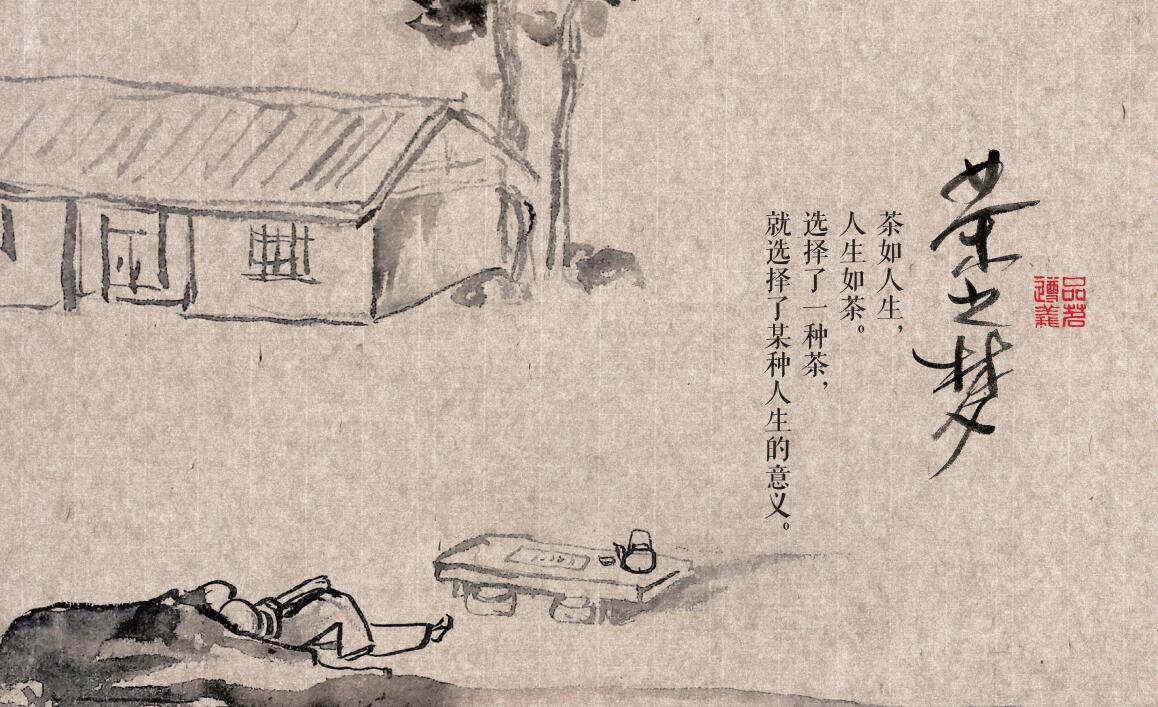 茶之梦
品茗
遵義
茶如人生，
人生如茶。
选择了一种茶，
就选择了某种人生的意义。